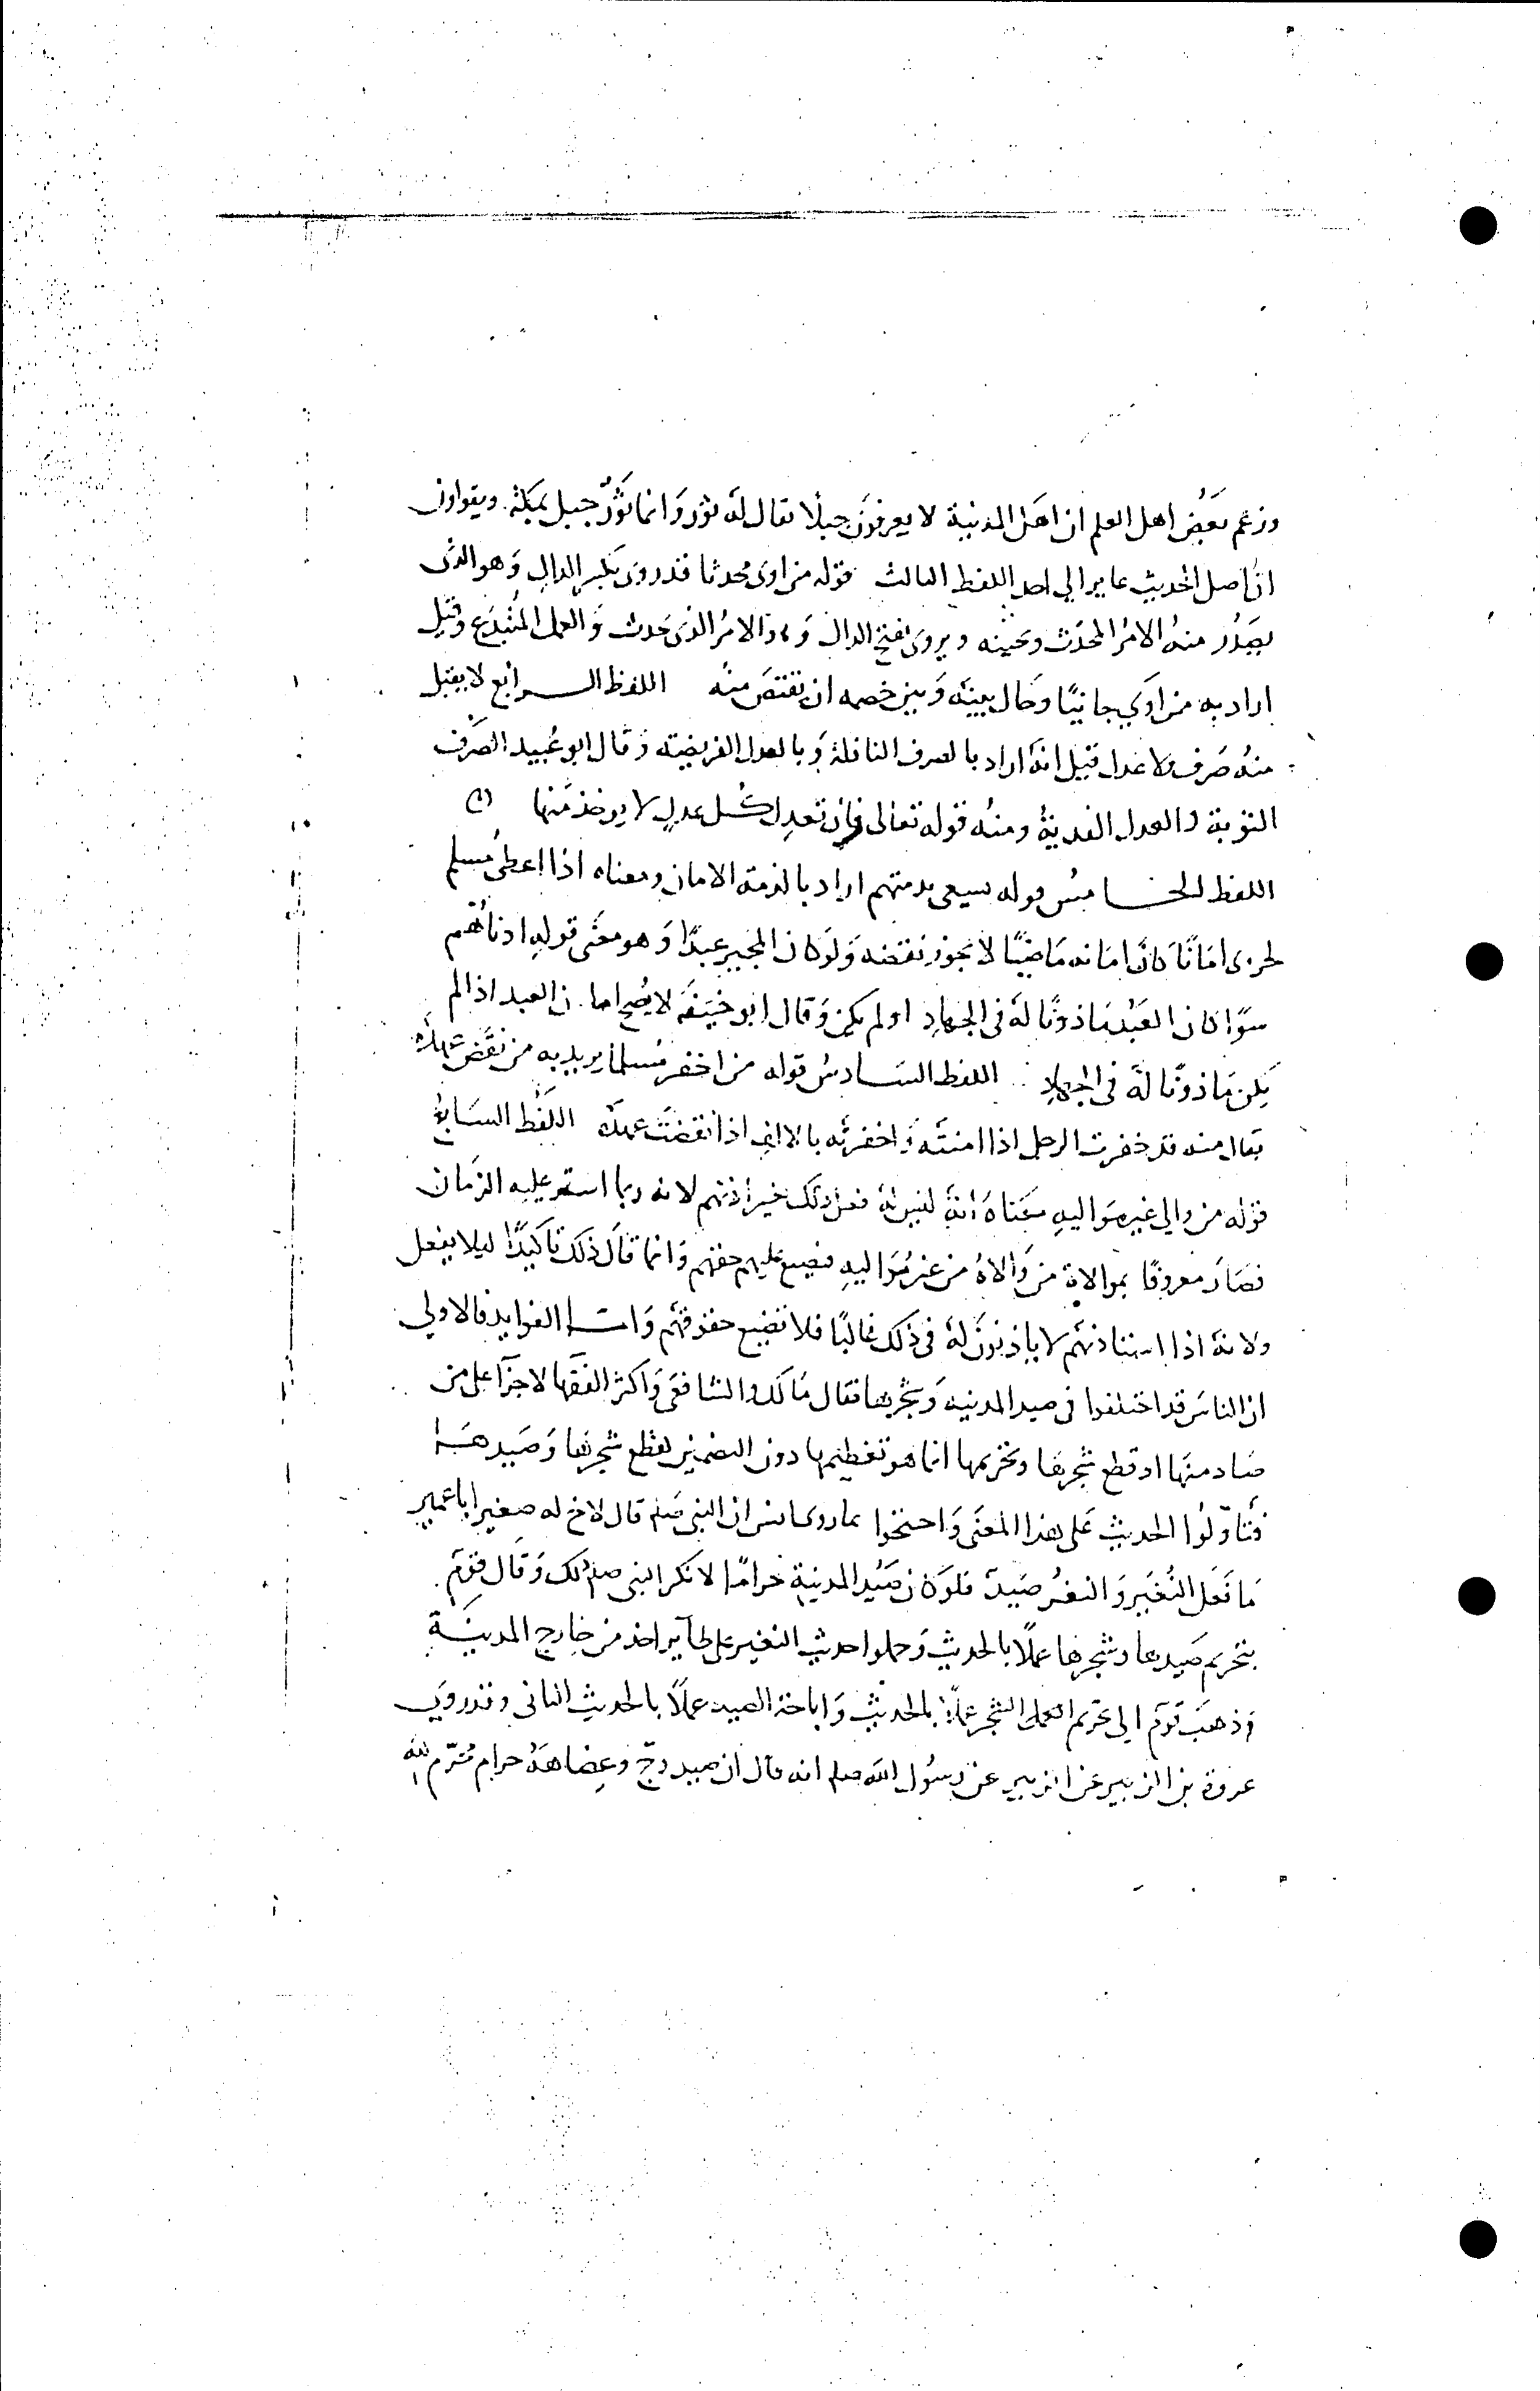 وزعم بعض اهل العلم ان اهل المدينة لا يعرفون جبلا يقال له ثور وانما ثور جبل بمكة ويقولون
ان اصل الحديث عاير الي احد اللفظ الثالث قوله من اوى محدثا قد روى بكسر الدال وهو الذى
يصدر منه الامر المحدث وبحينه ويروى بفتح الدال وهو الامر الذى حدث والعمل المبتدع وقيل
اراد به من اوي جانيا وحال بينه وبين خصمه ان يقتص منه اللفظ الرابع لا يقبل
منه صرف ولا عدل قيل انه اراد بالصرف النافلة وبالعدل الفريضة وقال ابو عبيد الصرف
التوبة والعدل الفدية ومنه قوله تعالى فان تعدل كل عدل لا يوخذ منها
اللفظ الخامس قوله يسعى بدمتهم اراد بالذمة الامان ومعناه اذا اعطى مسلم
لحربى امانا كان امانه ماضيا لا يجوز نقضه ولو كان المجير عبدا وهو معنى قوله ادناهم
سوا كان العبد ماذونا له فى الجهاد او لم يكن وقال ابو حنيفة لا يصح امان العبد اذا لم
يكن ماذونا له فى الجهاد اللفظ السادس قوله من اخفر مسلما يريد به من نقض عهده
يقال منه قد خفرت الرجل اذا امنته واخفرته بالالف اذا نقضت عهده اللفظ السابع
قوله من والي غير مواليه معناه انه ليس له فعل ذلك بغير اذنهم لانه ربما استمر عليه الزمان
فصار معروفا بموالاة من والاه من غير مواليه فيضيع عليهم حقهم وانما قال ذلك تاكيدا ليلا يفعل
ولانه اذا استاذنهم لا ياذنون له فى ذلك غالبا فلا تضيع حقوقهم واما الفوايد فالاولي
ان الناس قد اختلفوا فى صيد المدينة وشجرها فقال مالك والشافعى واكثر الفقها لا جزا على من
صاد منها او قطع شجرها وتحريمها انما هو تعظيمها دون التضمين بقطع شجرها وصيدها
فتاولوا الحديث على هذا المعنى واحتجوا بما روى انس ان النبى صلم قال لاخ له صغير ابا عمير
ما فعل النغير والنغر صيد فلو كان صيد المدينة حراما لانكر النبى صلم ذلك وقال قوم
بتحريم صيدها وشجرها عملا بالحديث وحملوا حديث النغير على طاير اخذ من خارج المدينة
وذهب قوم الى تحريم الشجر عملا بالحديث واباحة الصيد عملا بالحديث الثانى وقد روي
عروة بن الزبير عن الزبير عن رسول الله صلم انه قال ان صيد وج وعضاهه حرام محرم لله